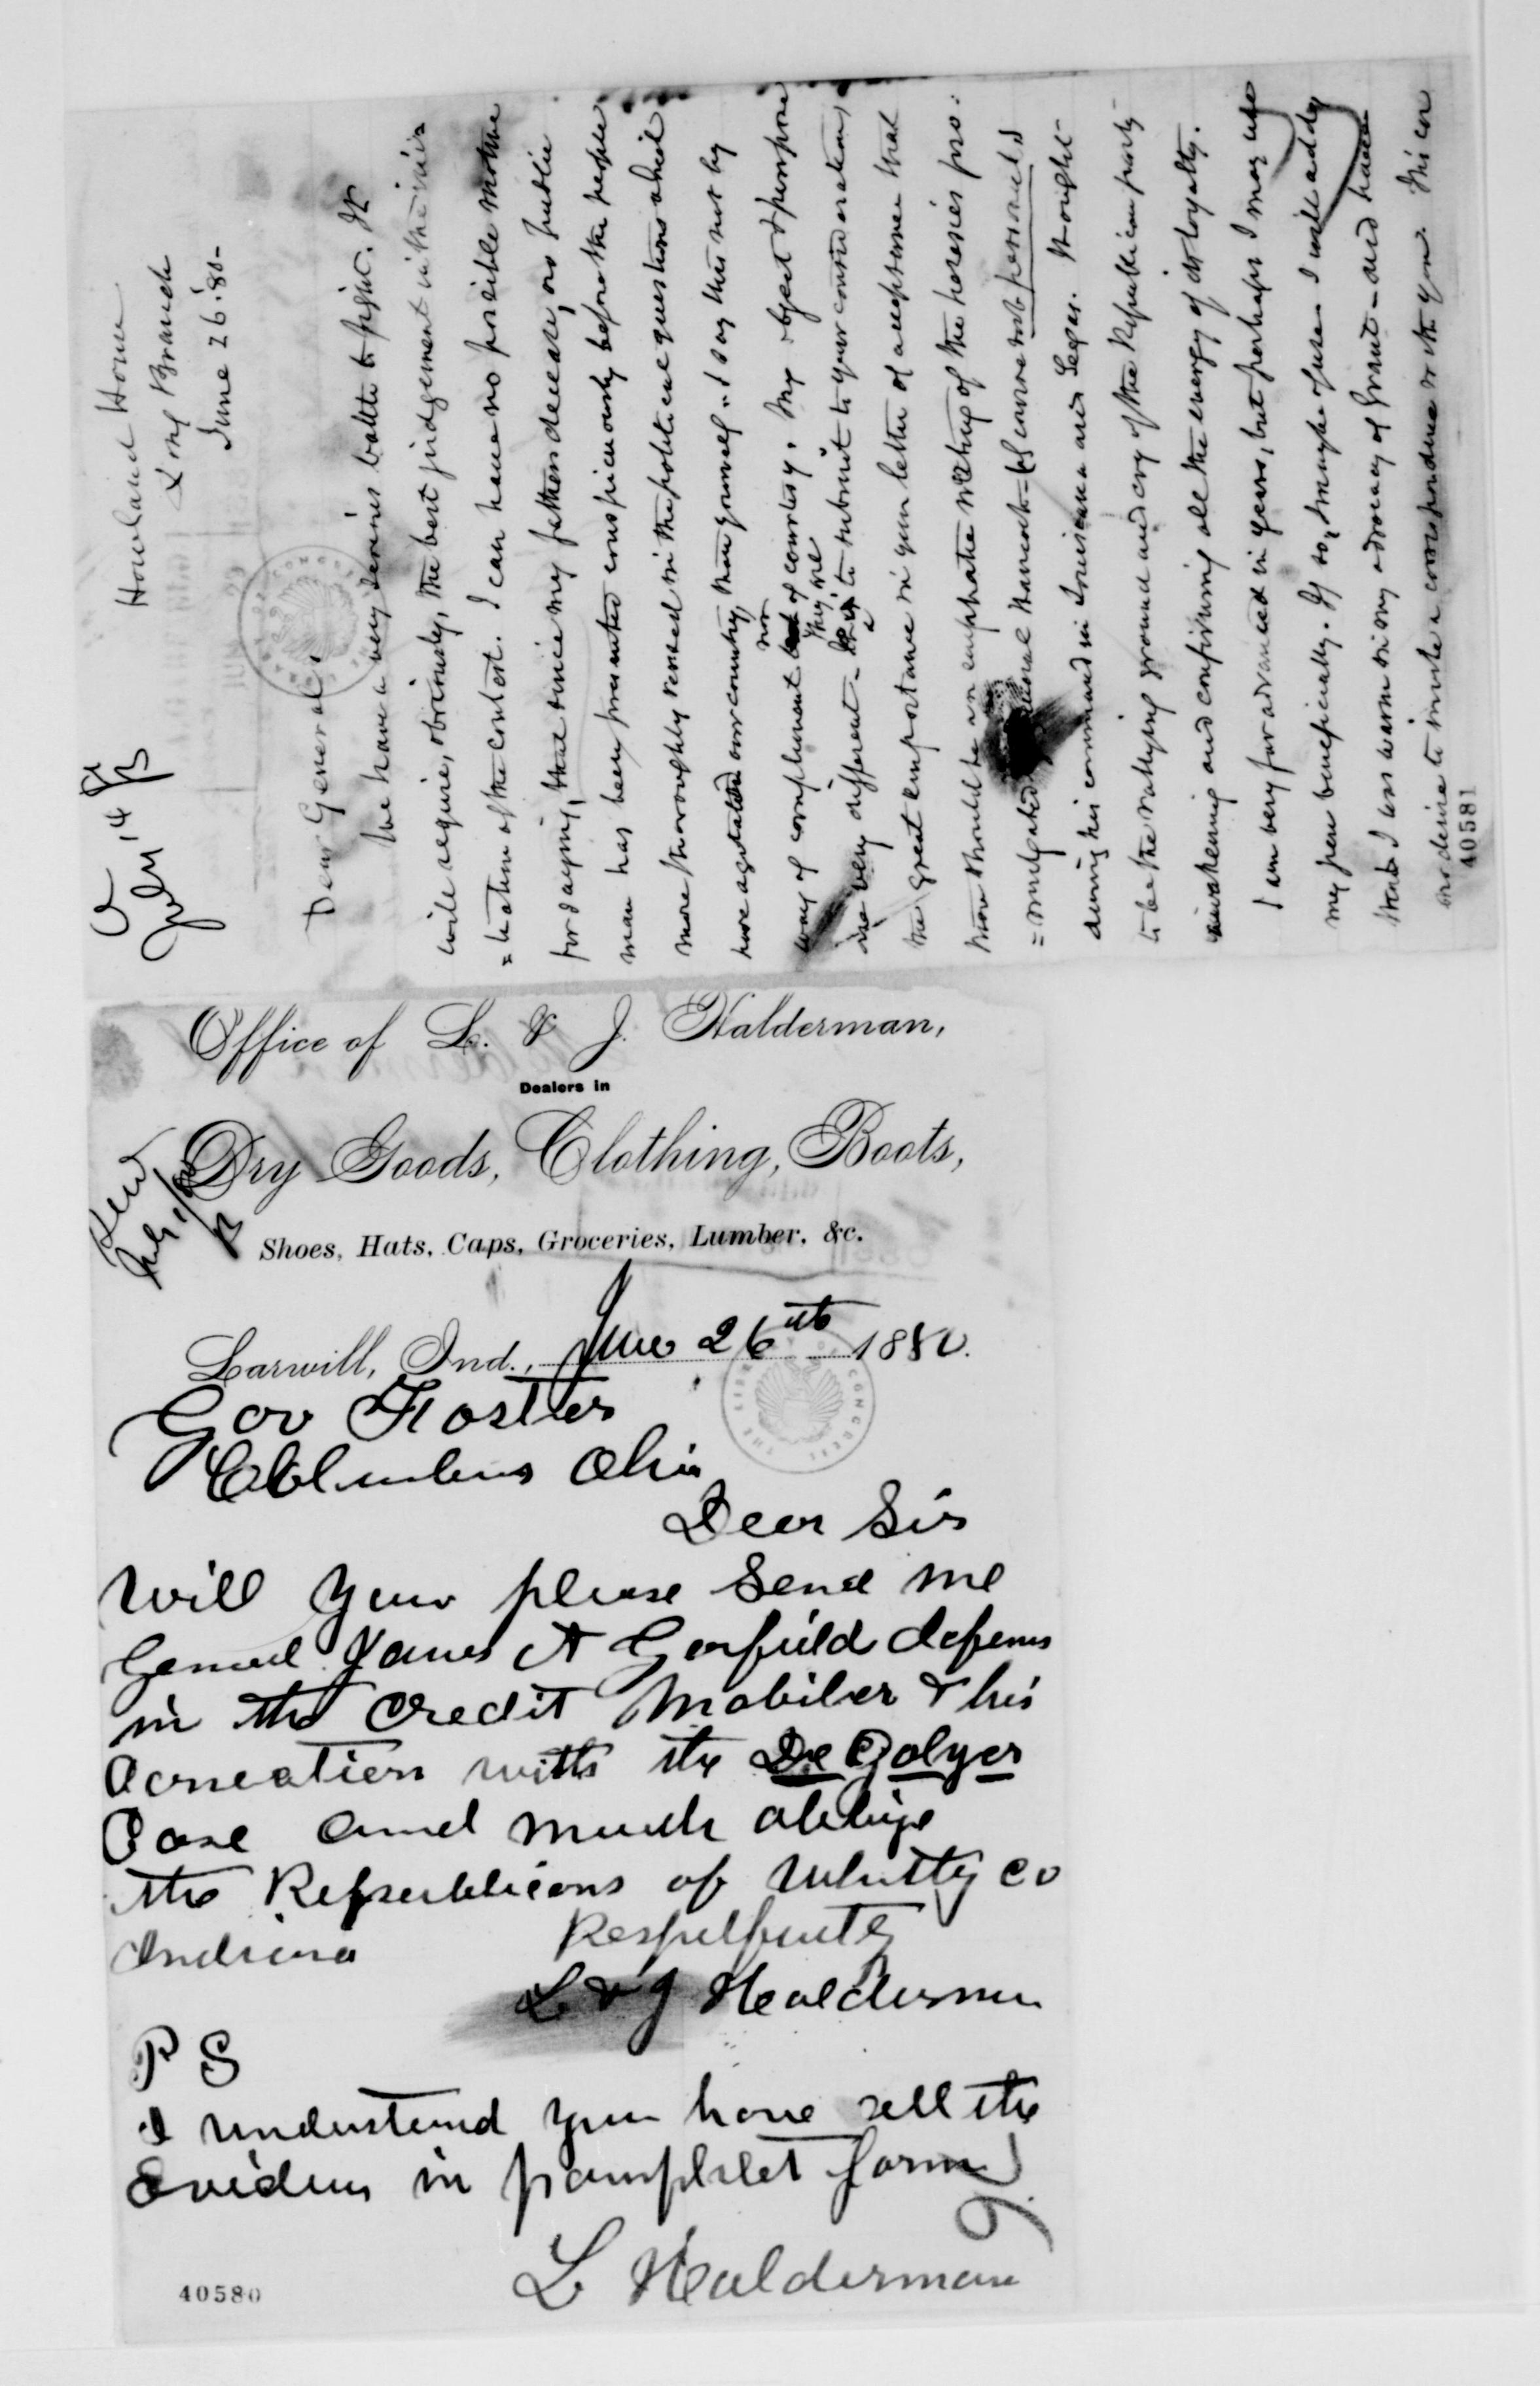 Howland House
Long Branch
June 26. '80-
July 14
Dear General.
We have a very serious battle to fight. It
will require, obviously, the best judgement in the
= of the contest. I can have no possible motive
for saying, that since my fathers decease, no public
man has been presented conspicuously before the people
more thoroughly versed in the political questions which
have agitated our country, than yourself - I say this not by
way of compliment nor of courtesy. My object & purpose
very different - to submit to your consideration,
the great importance in your letter of acceptance that
there should be an emphatic of the heresies pro:
= not personal
during his command in Louisiana and Texas. It ought
to be the rallying ground and cry of the Republican party
awakening and confirming all the energy of its loyalty.
I am very far advanced in years, but perhaps I may use
my pen beneficially. If so, I will
I was warm in my advocacy of Grant - and have
no desire to invite a correspondence with you. This
40581
Office of L. & J. Halderman,
Dealers in
Dry Goods, Clothing, Boots,
Shoes, Hats, Caps, Groceries, Lumber, &c.
Larwill, Ind., June 26th 1880.
Gov Foster
Columbus Ohio
Dear Sir
Will your please Send me
General James A Garfield defens
in the Credit Mobiler & his
Acneation with the De Golyer
Case and much oblige
the Republicans of Whitly Co
Indiana
Respelfully
L & J Halderman
P S
I understand you have sell the
Evidens in pamphlet form
L Halderman
40580